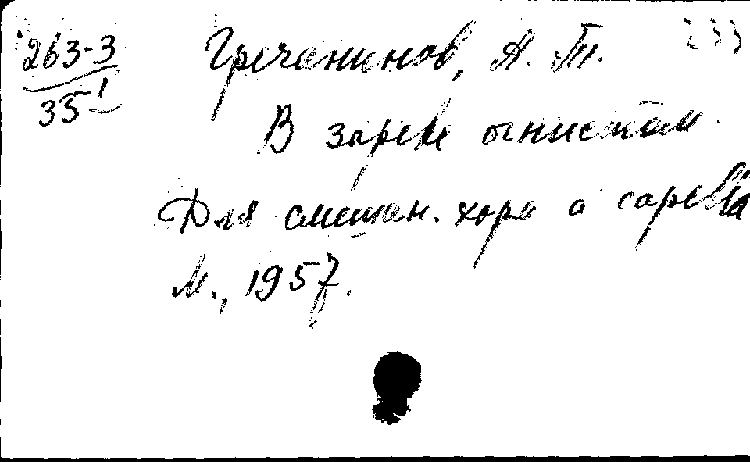 263-3
35¹
Гречанинов, А. Т.
В зареве огнистом.
Для смешан. хора a capella
М., 1957.